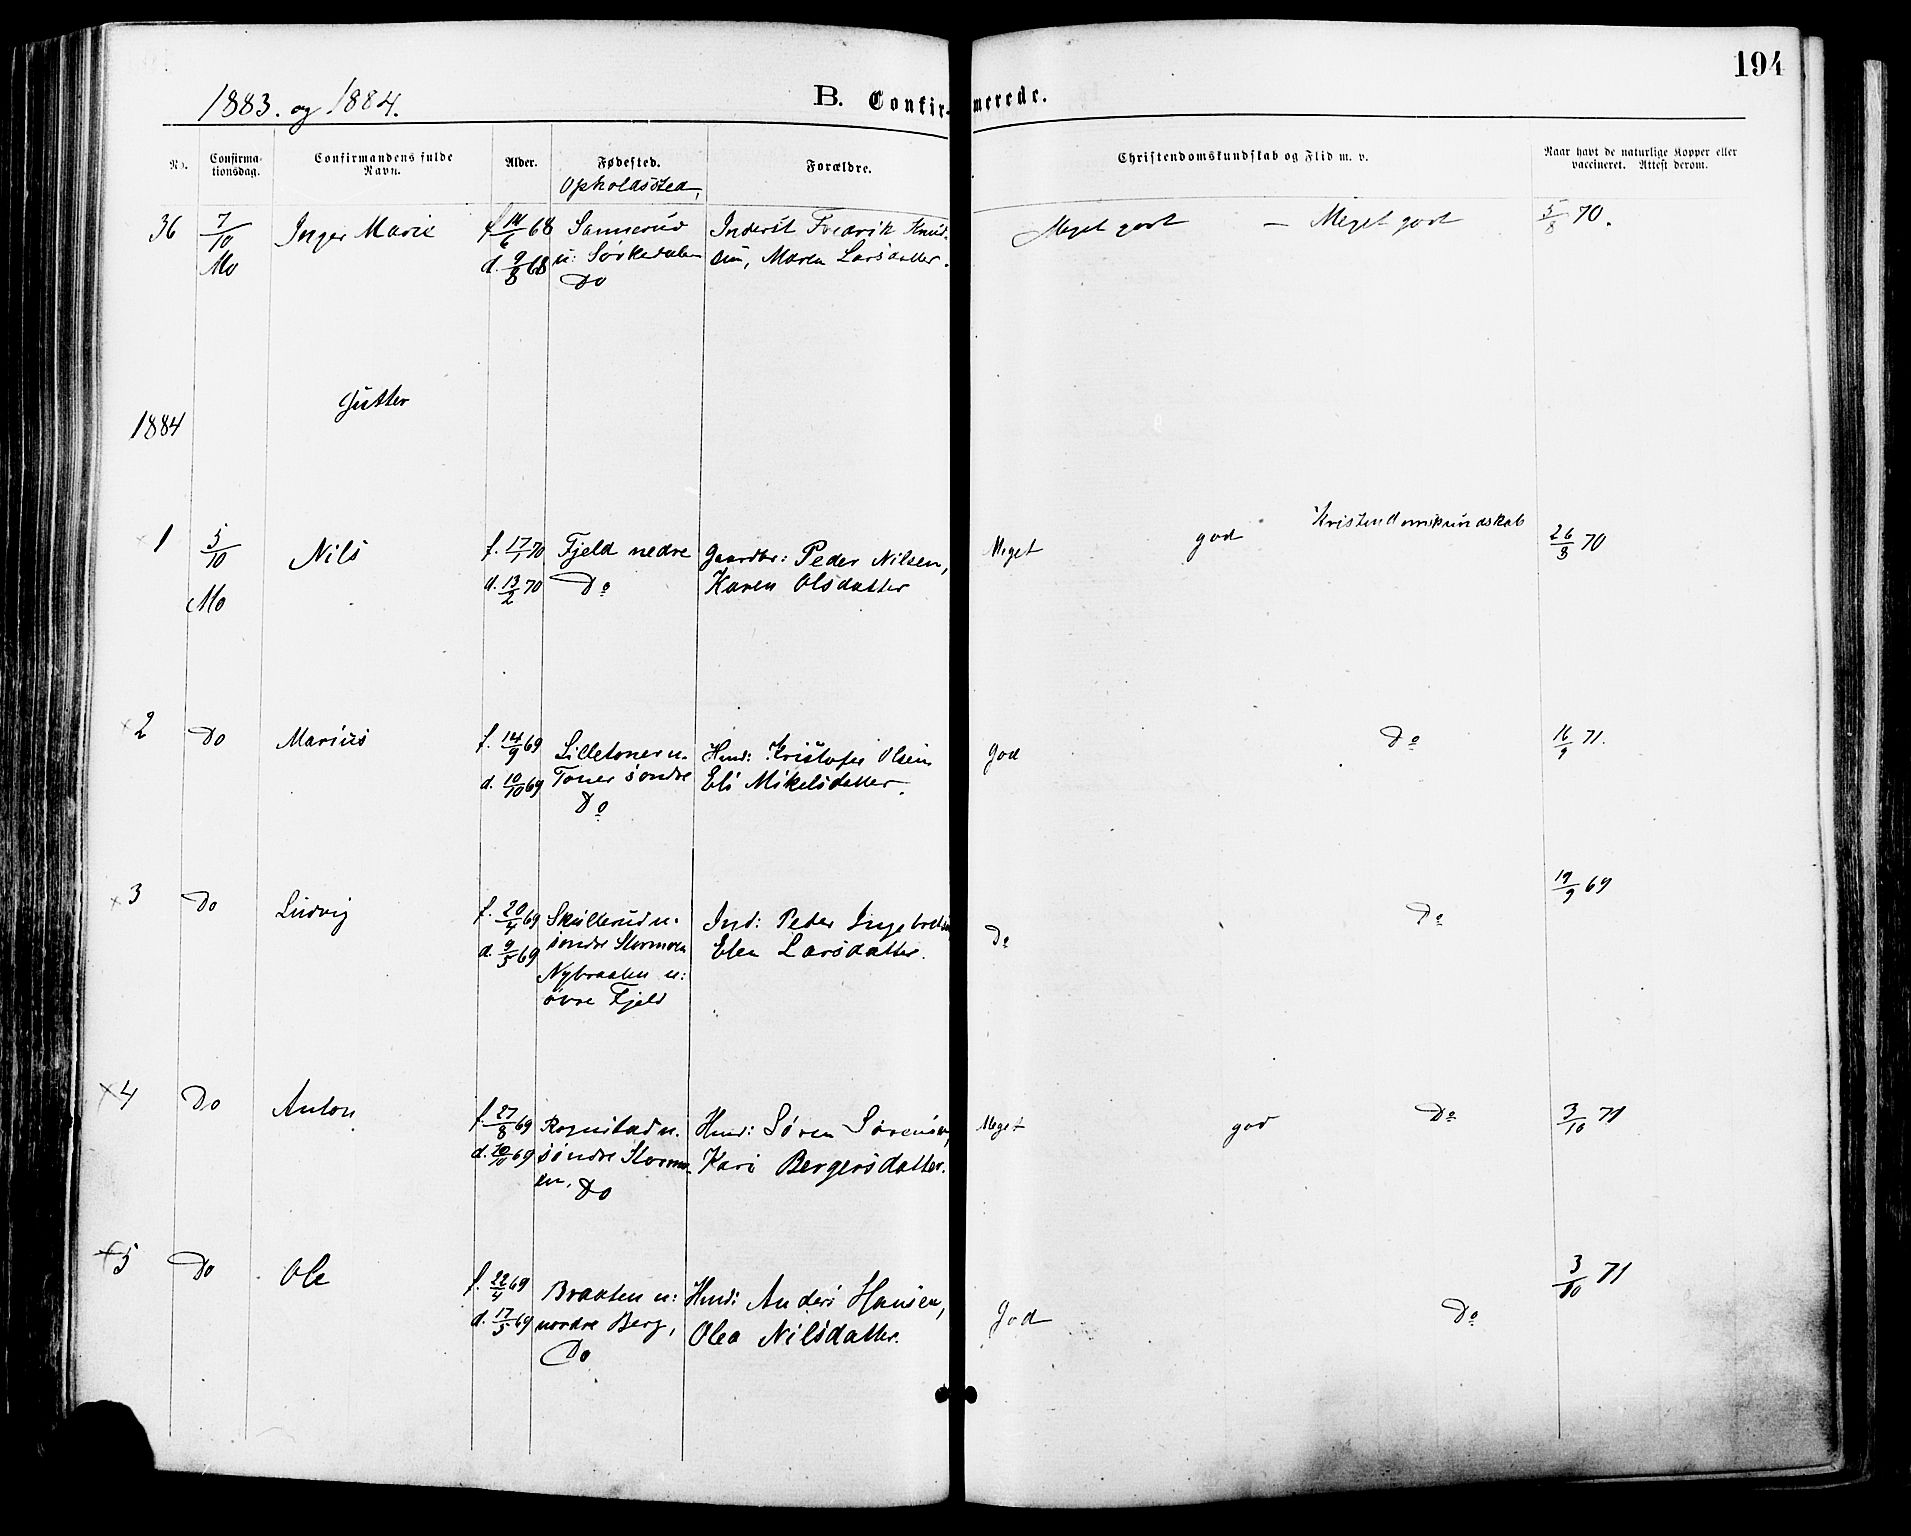 194
1883. og 1884. B. Confirmerede.
No. Confirma-tionsdag. Confirmandens fulde Navn. Alder. Fødested. Opholdssted, Forældre. Christendomskundskab og Flid m. v. Naar havt de naturlige Kopper eller vaccineret. Attest derom.
36 7/10 Inger Marie f 14/6 68 Sannerud Inderst Fredrik Knud- Meget godt — Meget godt 5/8 70.
Mo d. 9/8 68 u: Sørkedalen sen, Maren Larsdatter.
Do
Gutter
1884
1 5/10 Nils f. 17/1 70 Fjeld nedre Gaardbr: Peder Nilsen, Meget god Kristendomskundskab 26/8 70
Mo d. 13/2 70 Do Karen Olsdatter
2 Do Marius f. 14/9 69 Lilletoner u. Hmd: Kristofer Olsen God Do 16/9 71.
d. 10/10 69 Toner søndre Eli Mikelsdatter.
Do
3 Do Ludvig f. 20/4 69 Skullerud u. Ind: Peder Ingebretsen Do Do 19/9 69
d. 9/5 69 søndre Stormoen Elen Larsdatter.
Nybraaten u:
øvre Fjeld
4 Do Anton f. 27/8 69 Rognstad u. Hmd: Søren Sørensen, Meget god Do 3/10 71
d. 10/10 69 søndre Stormo- Kari Bergersdatter.
en. Do
5 Do Ole f. 22/4 69 Braaten u: Hmd: Anders Hansen, God Do 3/10 71
d. 17/5 69 nordre Berg, Olea Nilsdatter.
Do